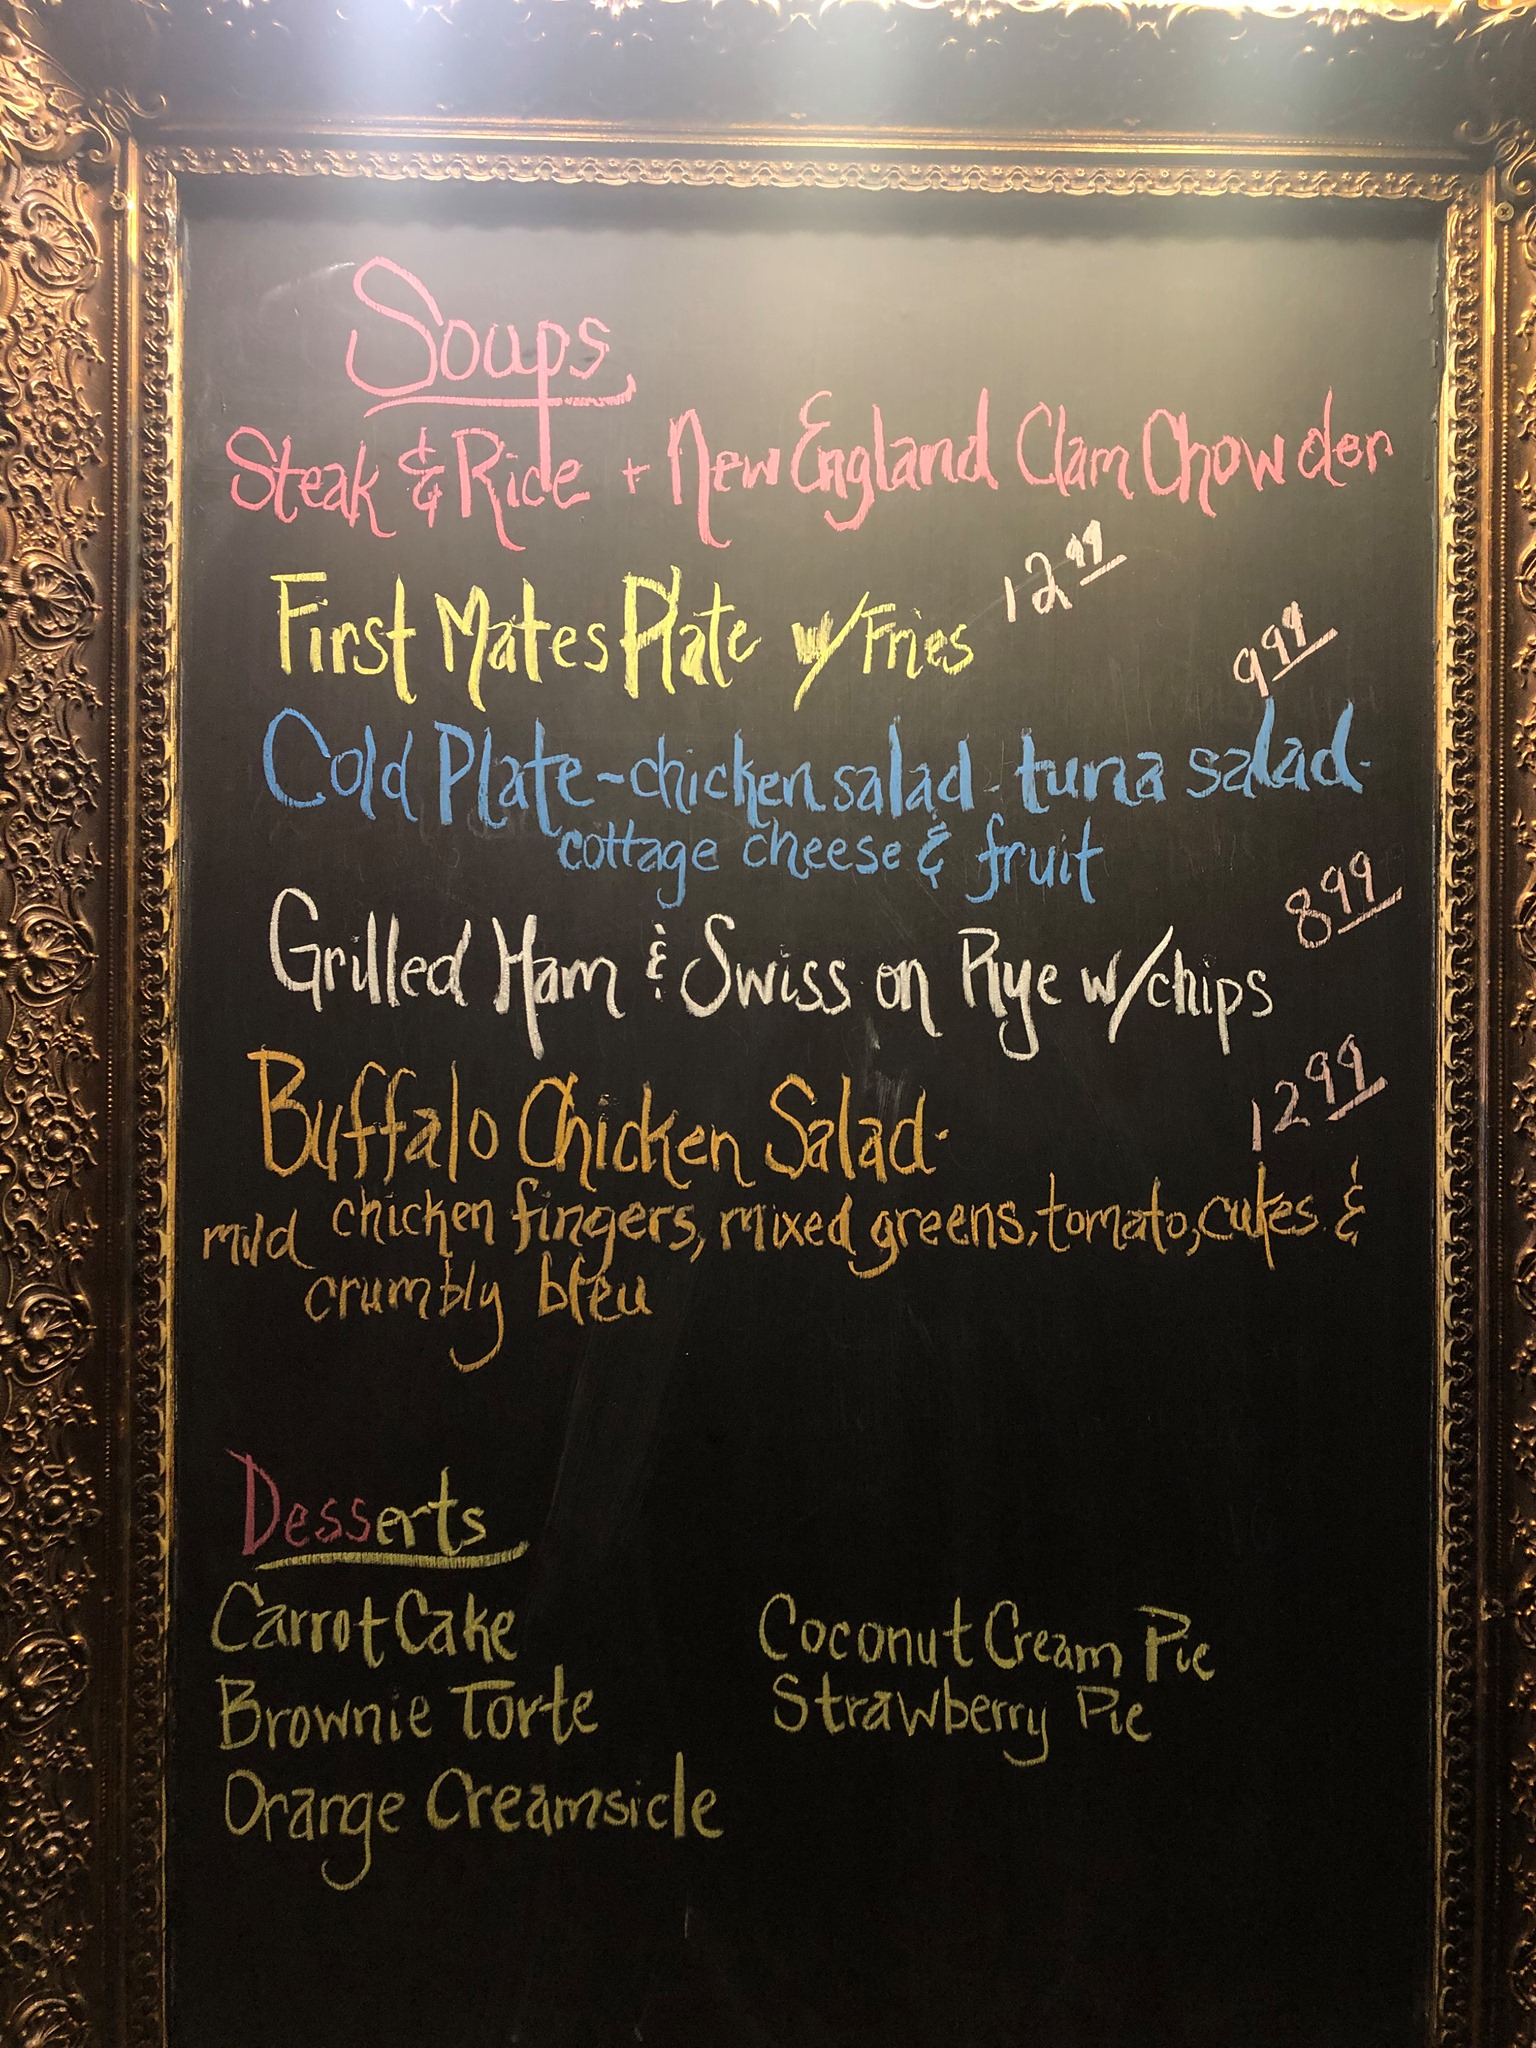 Soups
Steak & Rice + New England Clam Chowder
First Mates Plate w/Fries 12.99
9.99
Cold Plate - chicken salad - tuna salad -
cottage cheese & fruit
8.99
Grilled Ham & Swiss on Rye w/chips
12.99
Buffalo Chicken Salad -
mild chicken fingers, mixed greens, tomato, cukes &
crumbly bleu
Desserts
Carrot Cake
Brownie Torte
Orange Creamsicle
Coconut Cream Pie
Strawberry Pie